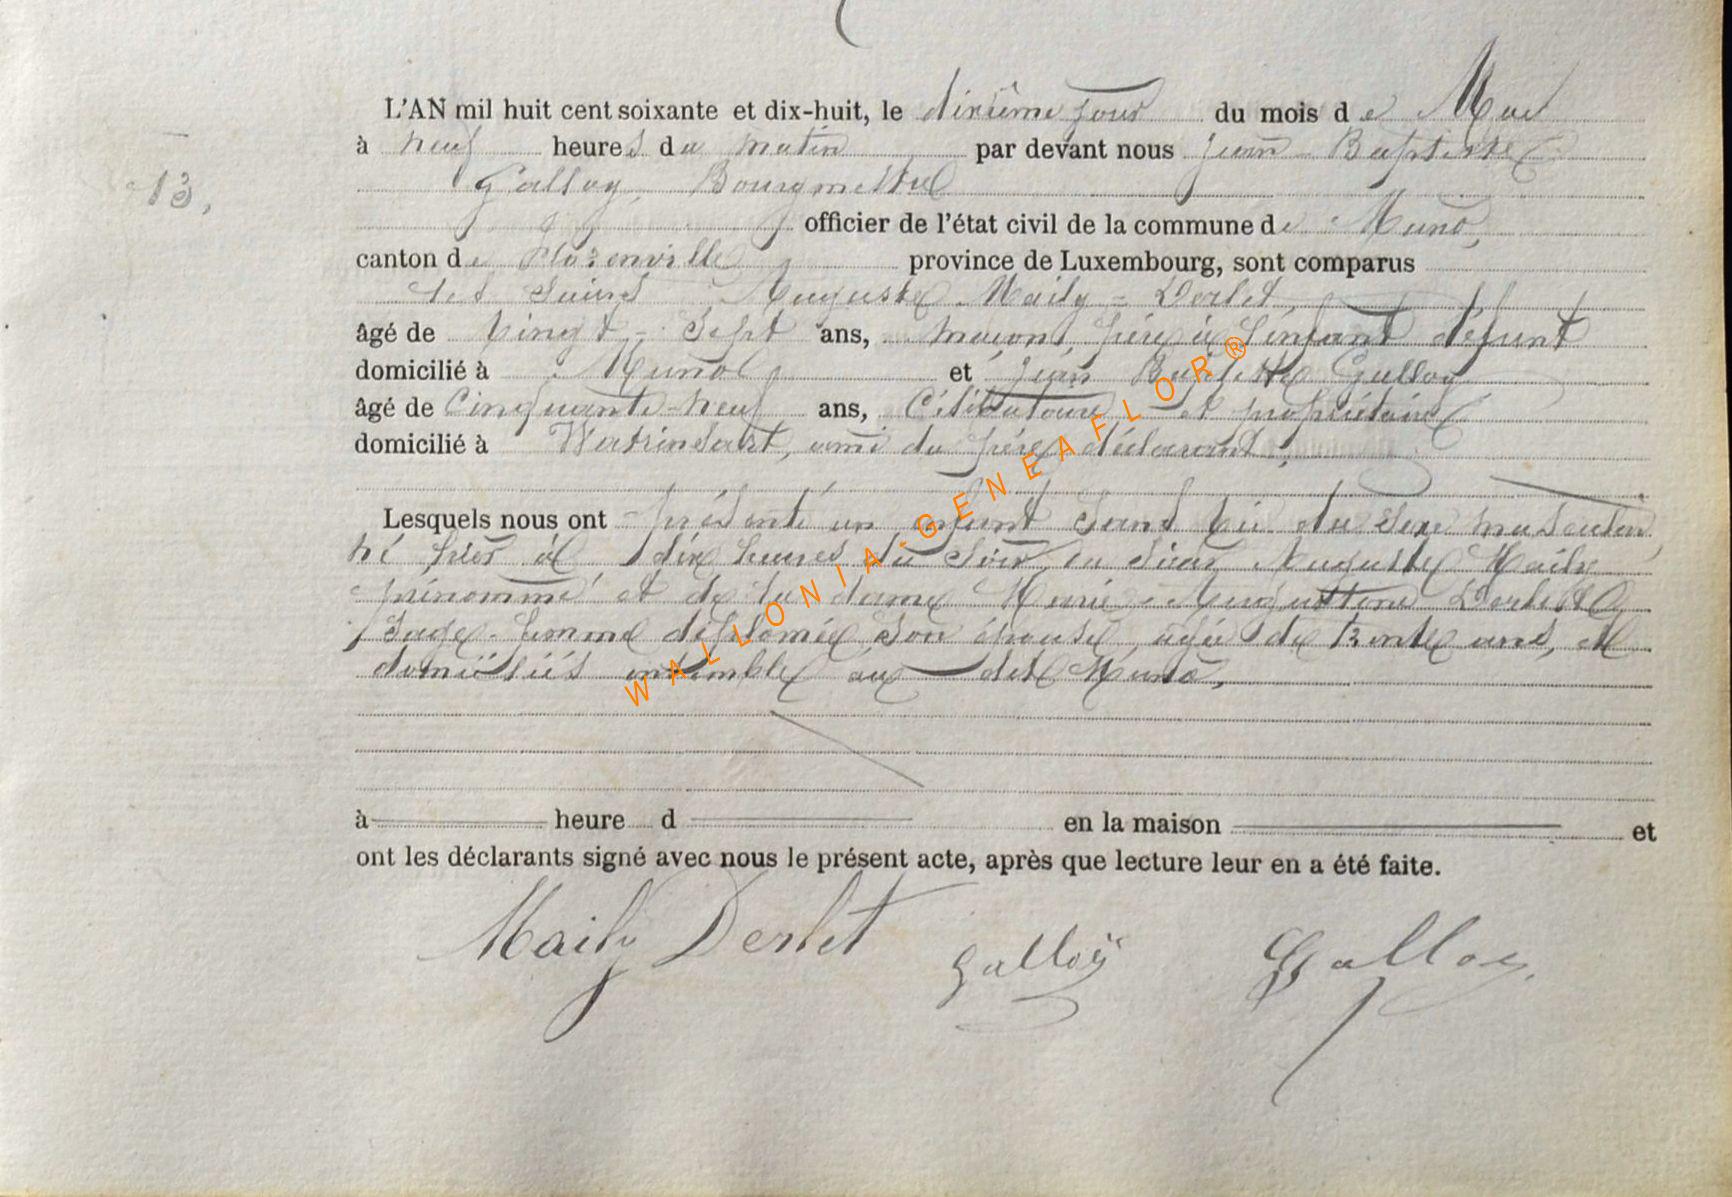 L'AN mil huit cent soixante et dix-huit, le dixième jour du mois de Mai
à neuf heures du matin par devant nous Jean-Baptiste
13,
Galloy, Bourgmestre
officier de l'état civil de la commune de Muno,
canton de Florenville province de Luxembourg, sont comparus
les Auguste Maily-Derlet,
âgé de vingt-sept ans, maçon, père à l'enfant défunt
domicilié à Muno et Jean Baptiste Galloy
âgé de Cinquante-neuf ans, Célibataire et propriétaire
domicilié à Watrinsart, ami du père déclarant,
Lesquels nous ont présenté un enfant sans vie du sexe masculin,
né hier à dix heures du soir, du sieur Auguste Maily
prénommé et de la dame Marie-Augustine Derlet
sage-femme diplomée son épouse, agée de trente ans, et
domiciliés ensemble au dit Muno,
à heure d en la maison et
ont les déclarants signé avec nous le présent acte, après que lecture leur en a été faite.
Maily Derlet Galloÿ Galloy
WALLONIA-GENEAFLOR®